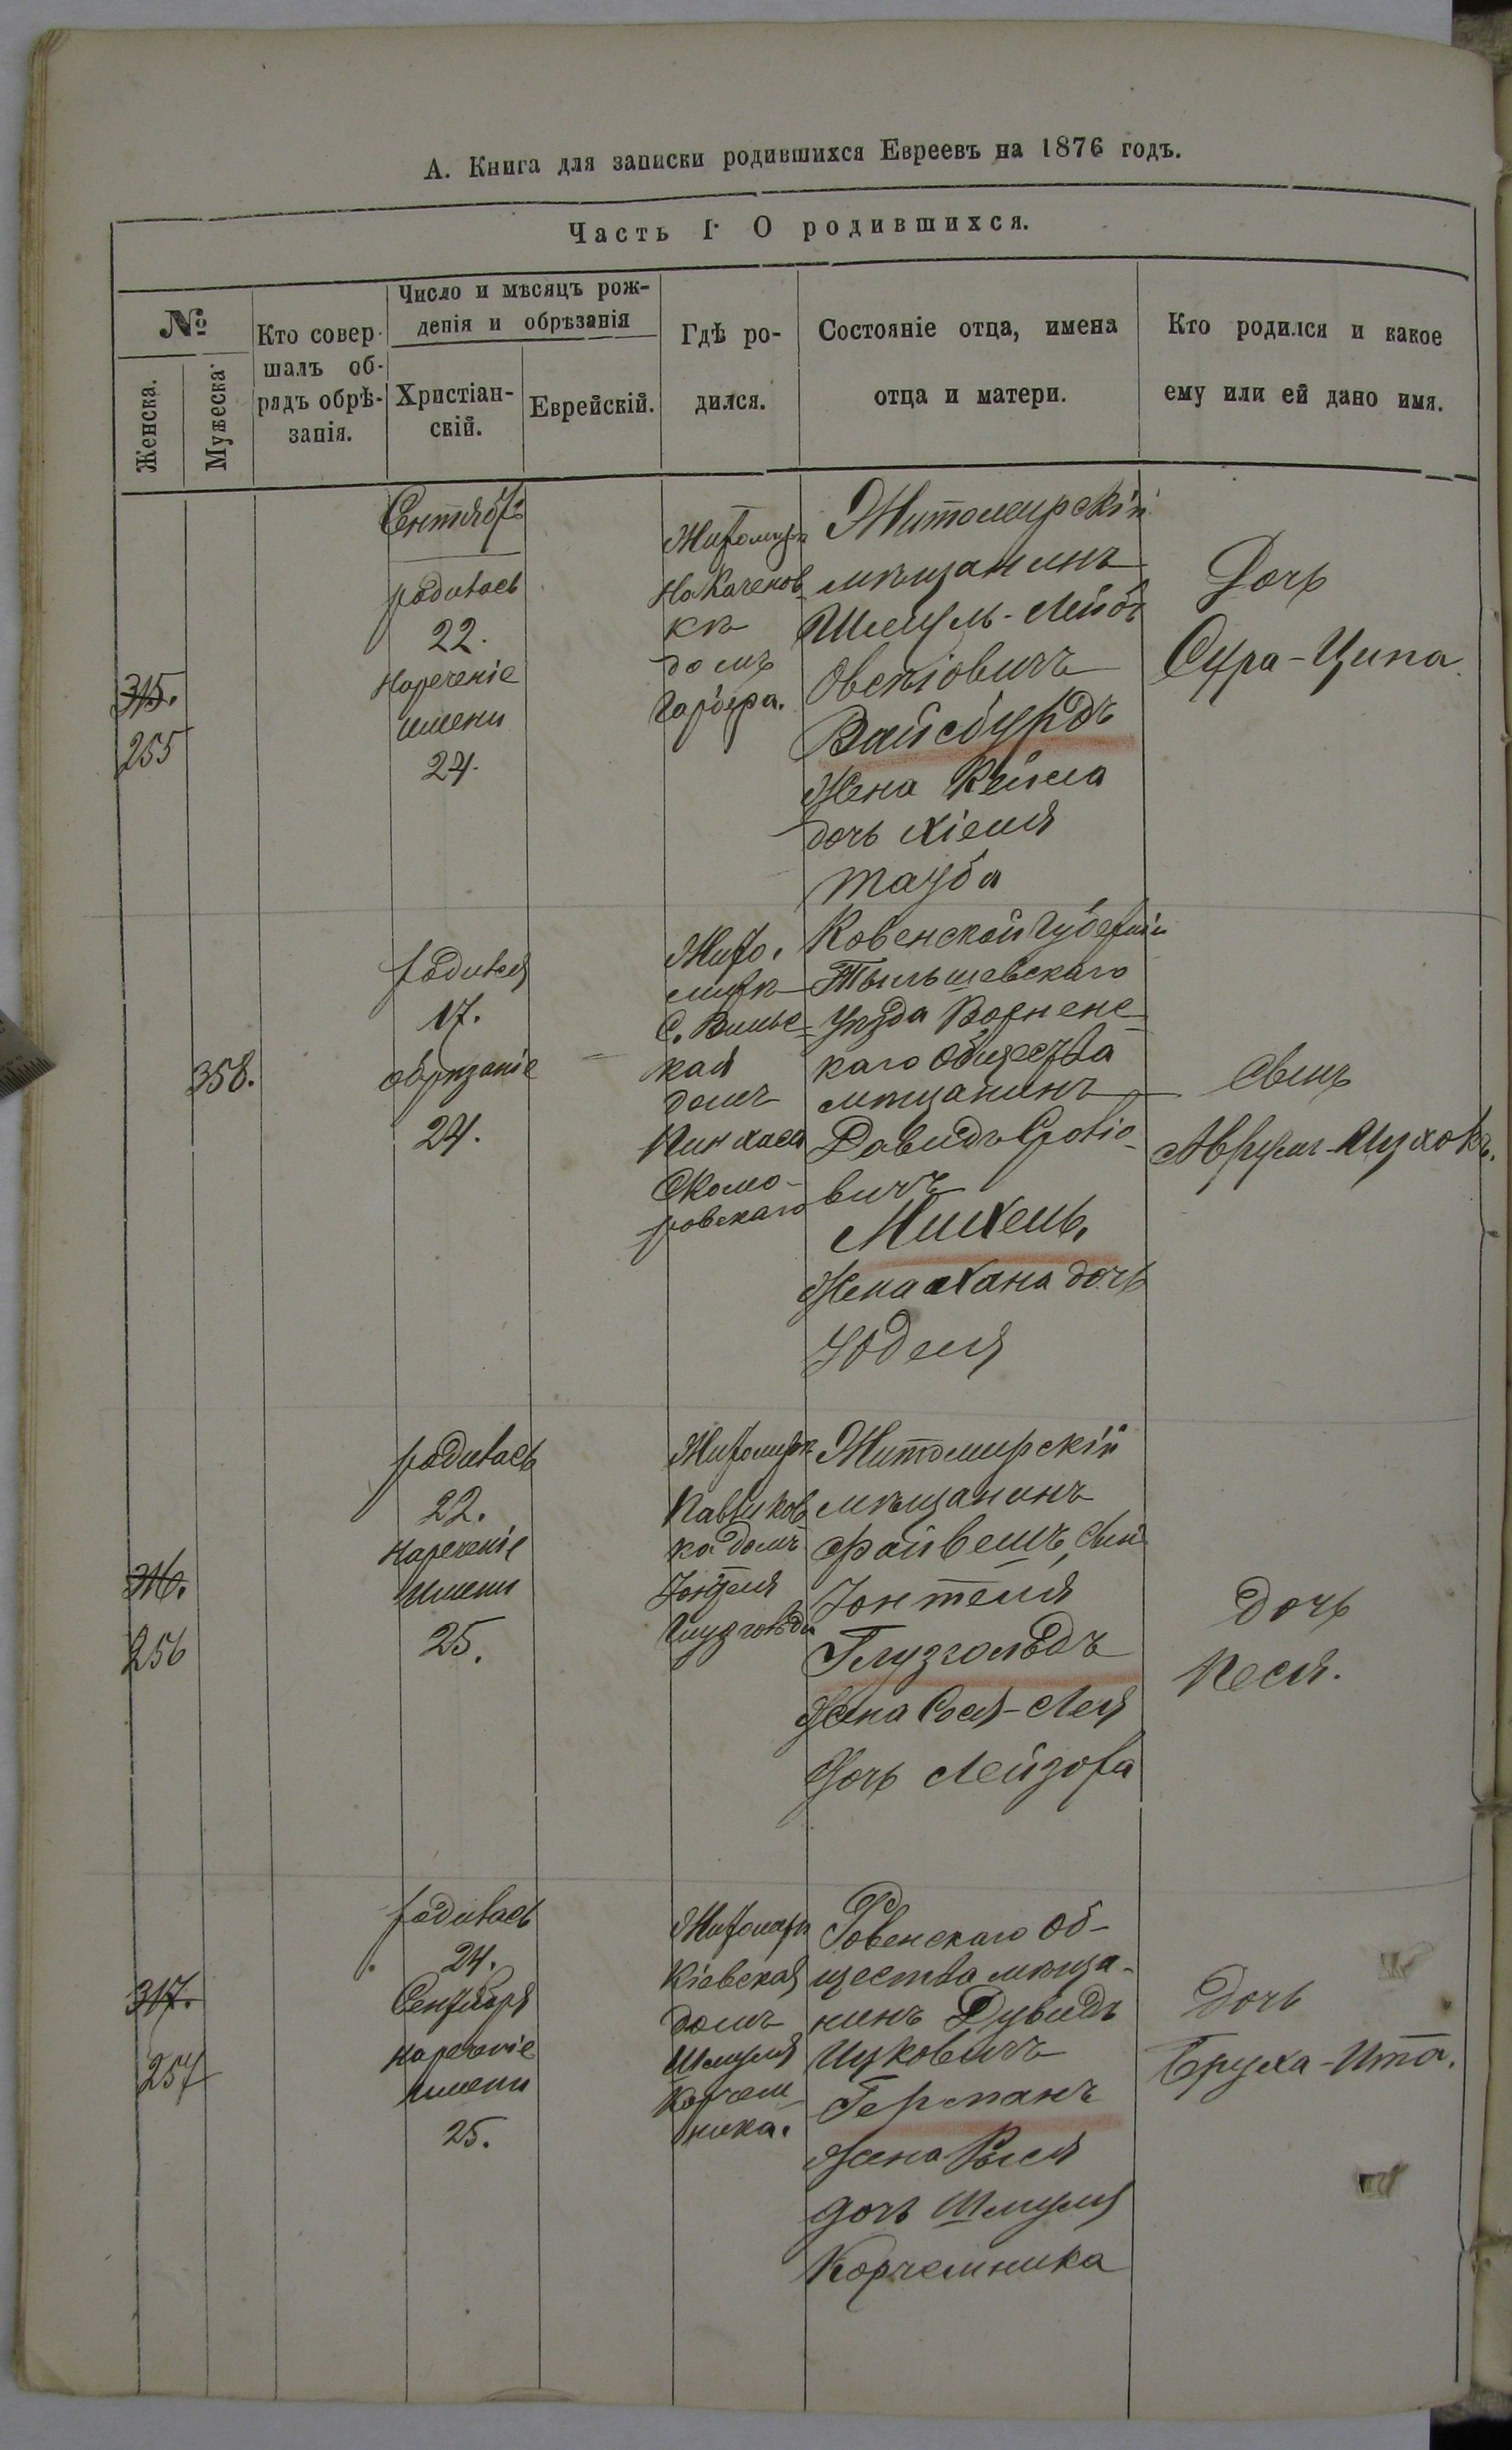 А. Книга для записки родившихся Евреевъ на 1876 годъ.
Часть I. О родившихся.
№
Женска.
Мужеска.
Кто совер-
шалъ об-
рядъ обрѣ-
занія.
Число и мѣсяцъ рож-
денія и обрѣзанія
Христіан-
скій.
Еврейскій.
Гдѣ ро-
дился.
Состояніе отца, имена
отца и матери.
Кто родился и какое
ему или ей дано имя.
315.
255
Сентябр.
родилась
22.
Нареченіе
имени
24.
Житомирѣ
На Каченов
кѣ
домъ
Гарбера.
Житомирскій
мѣщанинъ
Шмуль-Лейбъ
Овсѣіовичъ
Вайсбурдъ
Жена Рейзя
дочь Хіеля
Тауба
Дочь
Сура-Ципа
358.
родился
17.
обрѣзаніе
24.
Жито.
мирѣ
С. Вильс-
кая
домъ
Пинхаса
Скомо-
ровскаго
Ковенской Губерніи
Тыльшевскаго
Уѣзда Ворненс-
каго Общества
мѣщанинъ
Давидъ Оровіо-
вичъ
Михель,
Жена Хана дочь
Юделя
Сынъ
Аврумъ-Ицхокъ.
316.
256
родилась
22.
нареченіе
имени
25.
Житомирѣ
Павликов
ка домъ
Іонтеля
Глузгольда
Житомирскій
мѣщанинъ
Файвешъ, сынъ
Іонтеля
Глузгольдъ
Жена Сося-Лея
Дочь Лейзора
дочь
Песя.
317.
257
родилась
24.
Сентября
нареченіе
имени
25.
Житомирѣ
Кіевская
домъ
Шмуля
Корчем-
ника.
Ровенскаго Об-
щества мѣща-
нинъ Дувидъ
Ицковичъ
Германъ
Жена Рыся
дочь Шмуля
Корчемника
Дочь
Бруха-Ита.